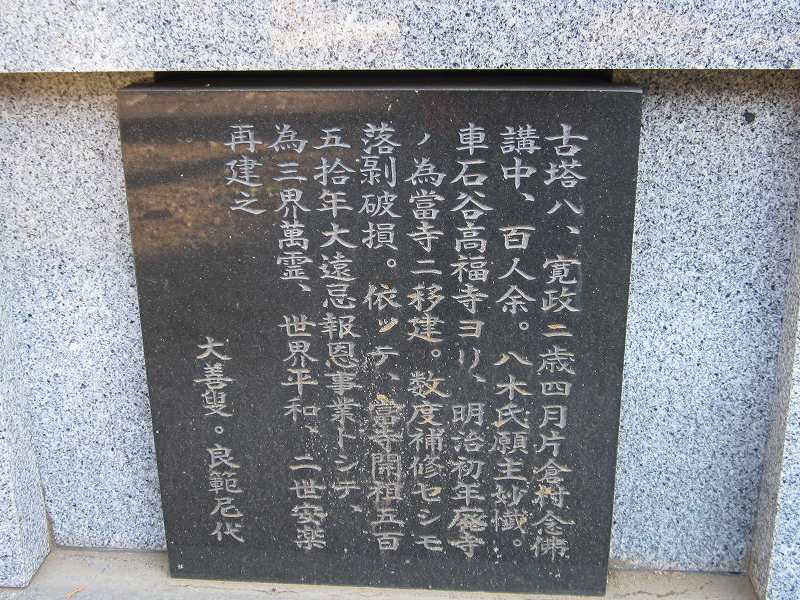 古塔ハ、寛政二歳四月片倉村念佛
講中、百人余。八木氏願主妙懴。
車石谷高福寺ヨリ、明治初年廃寺
ノ為當寺ニ移建。数度補修セシモ
落剥破損。依ッテ、當寺開祖五百
五拾年大遠忌報恩事業トシテ、
為三界萬霊、世界平和、二世安楽
再建之
大善叟。良範尼代